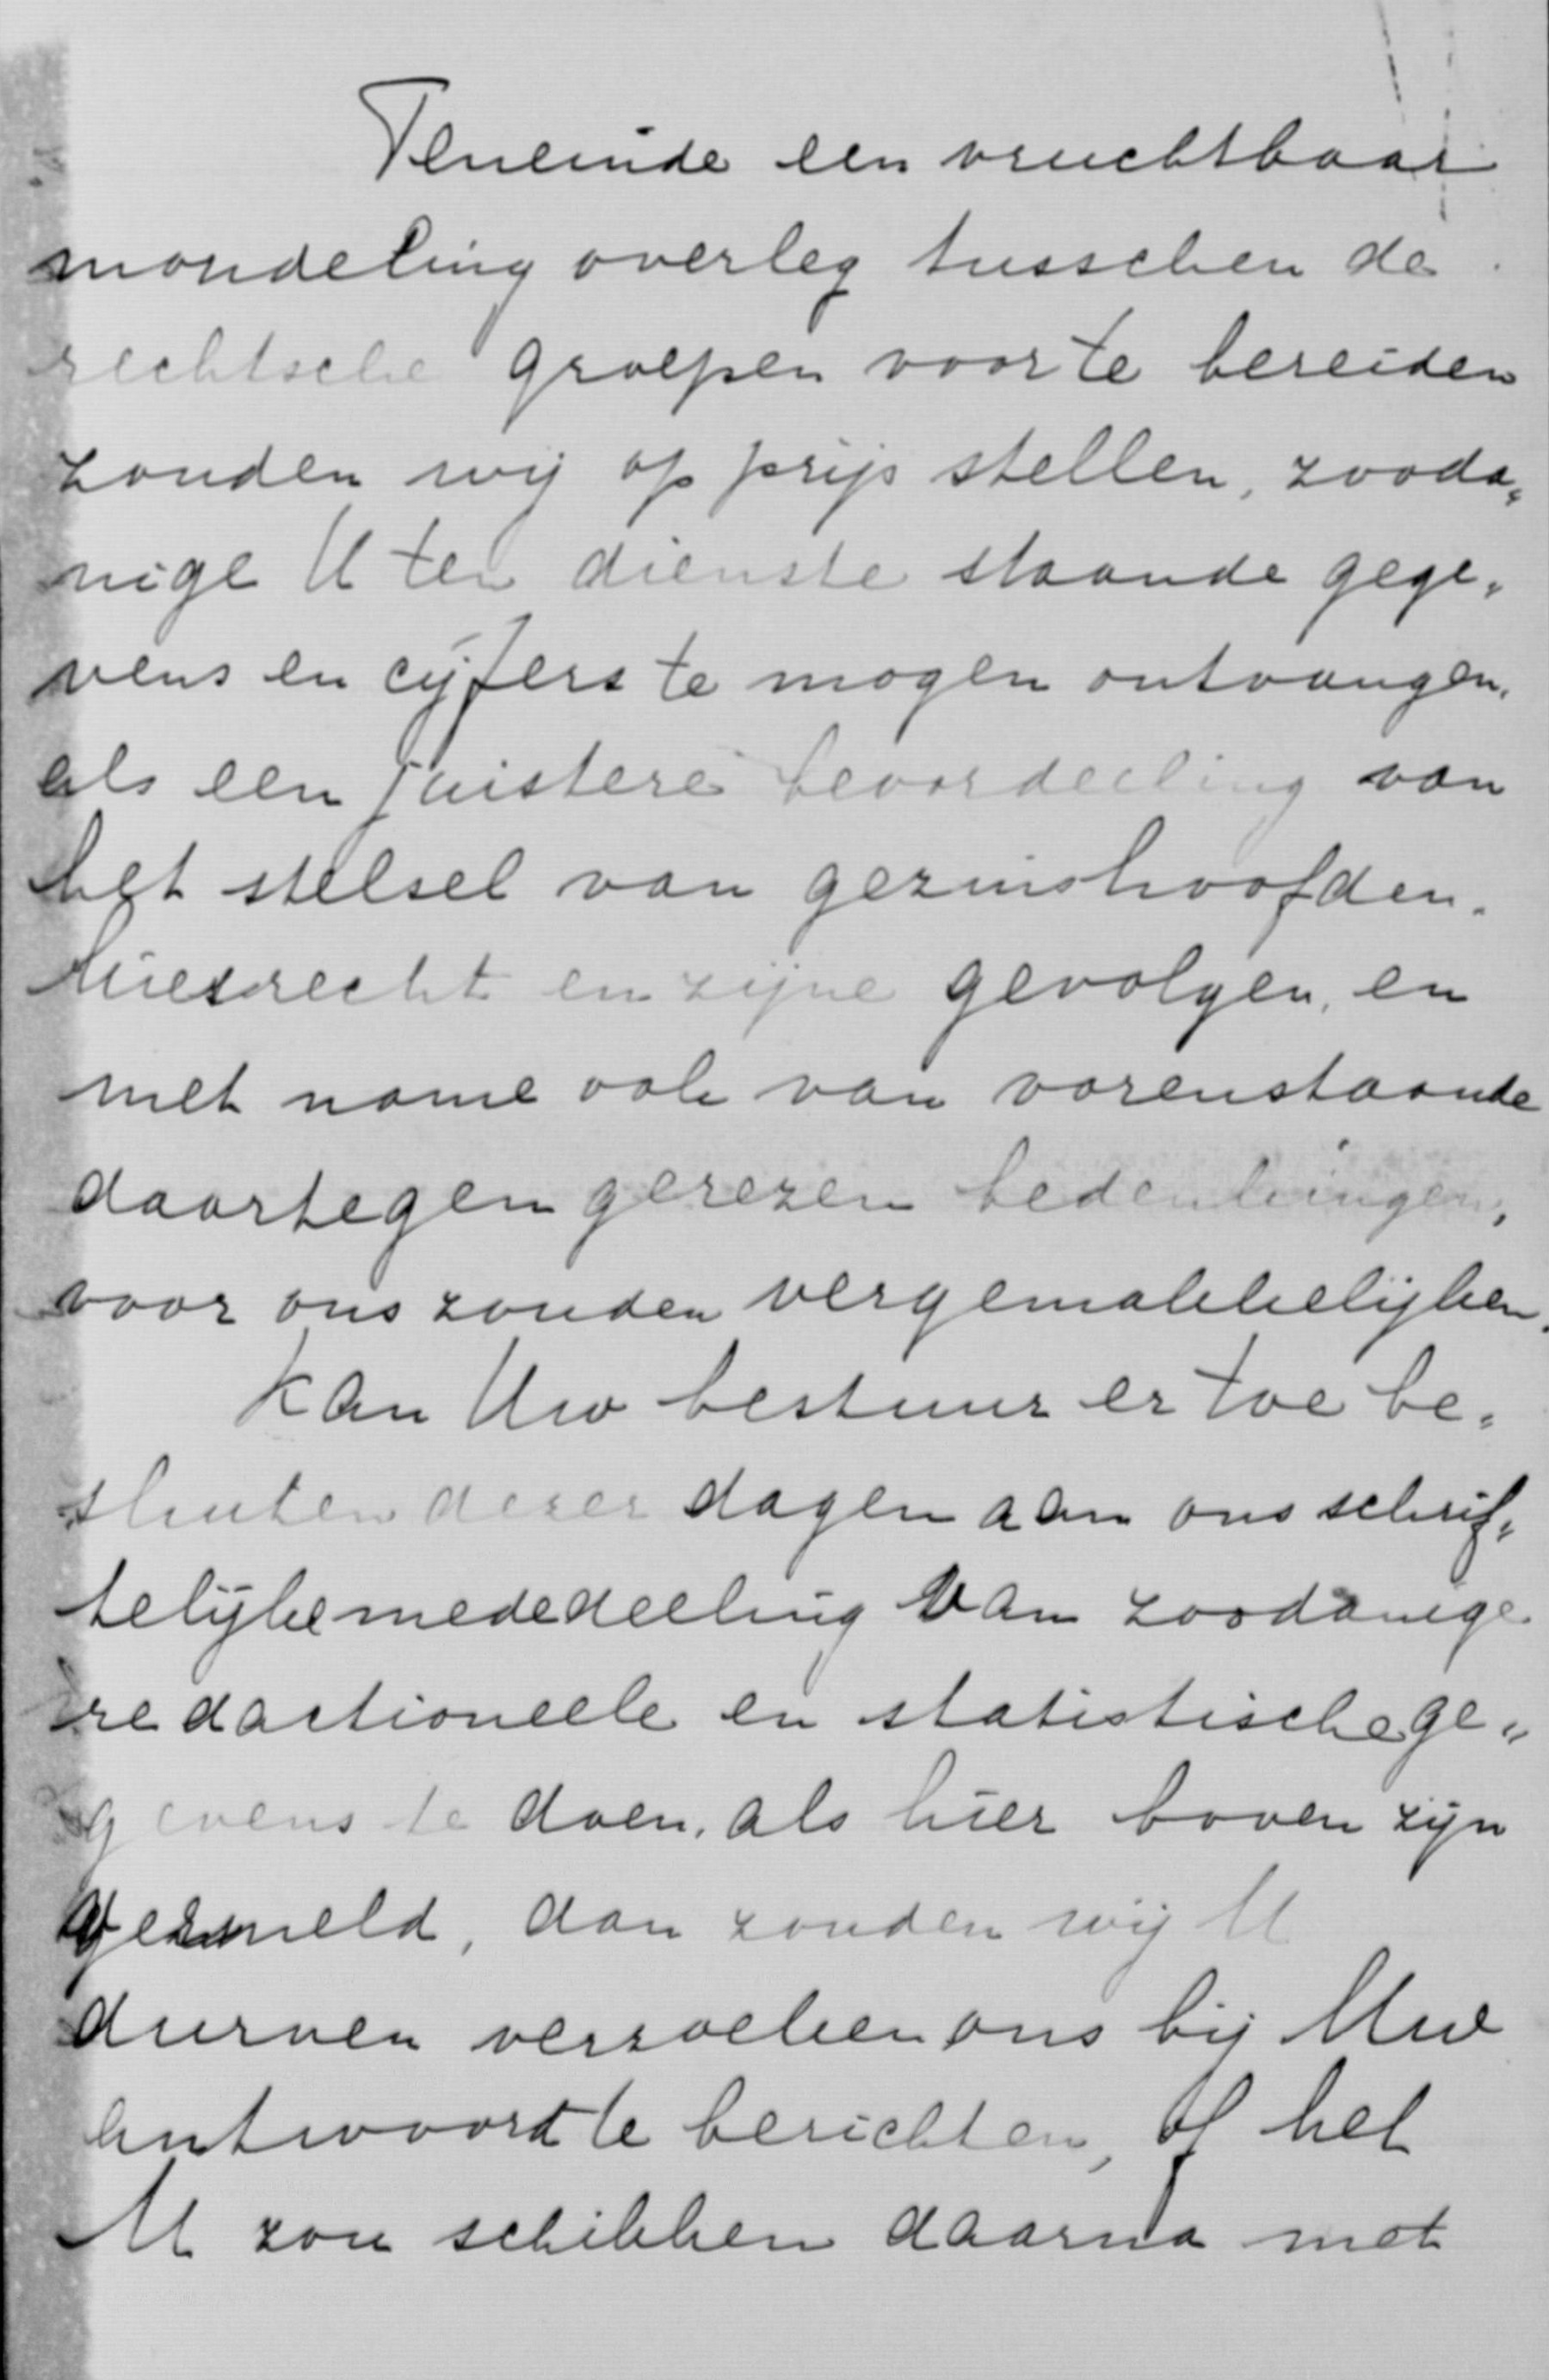 Teneinde een vruchtbaar
mondeling overleg tusschen de
rechtsche groepen voor te bereiden
zouden wij op prijs stellen, zooda„
nige U ten dienste staande gege„
vens en cijfers te mogen ontvangen,
als een juistere beoordeeling van
het stelsel van gezinshoofden„
kiesrecht en zijne gevolgen, en
met name ook van vorenstaande
daartegen gerezen bedenkingen,
voor ons zouden vergemakkelijken.
Kan Uw bestuur er toe be„
sluiten dezer dagen aan ons schrif„
telijke mededeeling van zoodanige
redactioneele en statistische ge„
gevens te doen, als hier boven zijn
gemeld, dan zouden wij U
durven verzoeken ons bij Uw
antwoord te berichten, of het
U zou schikken daarna met